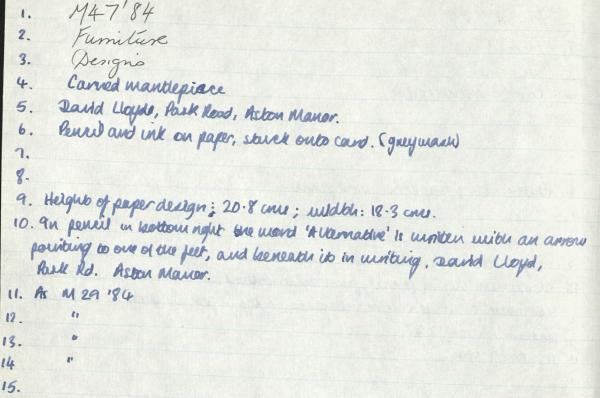 1. M47'84
2. Furniture
3. Designs
4. Carved mantlepiece
5. David Lloyds, Park Road, Aston Manor.
6. Pencil and ink on paper, stuck onto card. (greywash)
7.
8.
9. Height of paper design: 20.8 cms; width: 18.3 cms.
10. In pencil in bottom right the word 'Alternative' is written with an arrow
pointing to one of the feet, and beneath it in writing, David Lloyd,
Park Rd. Aston Manor.
11. As M29 '84
12. "
13. "
14 "
15.